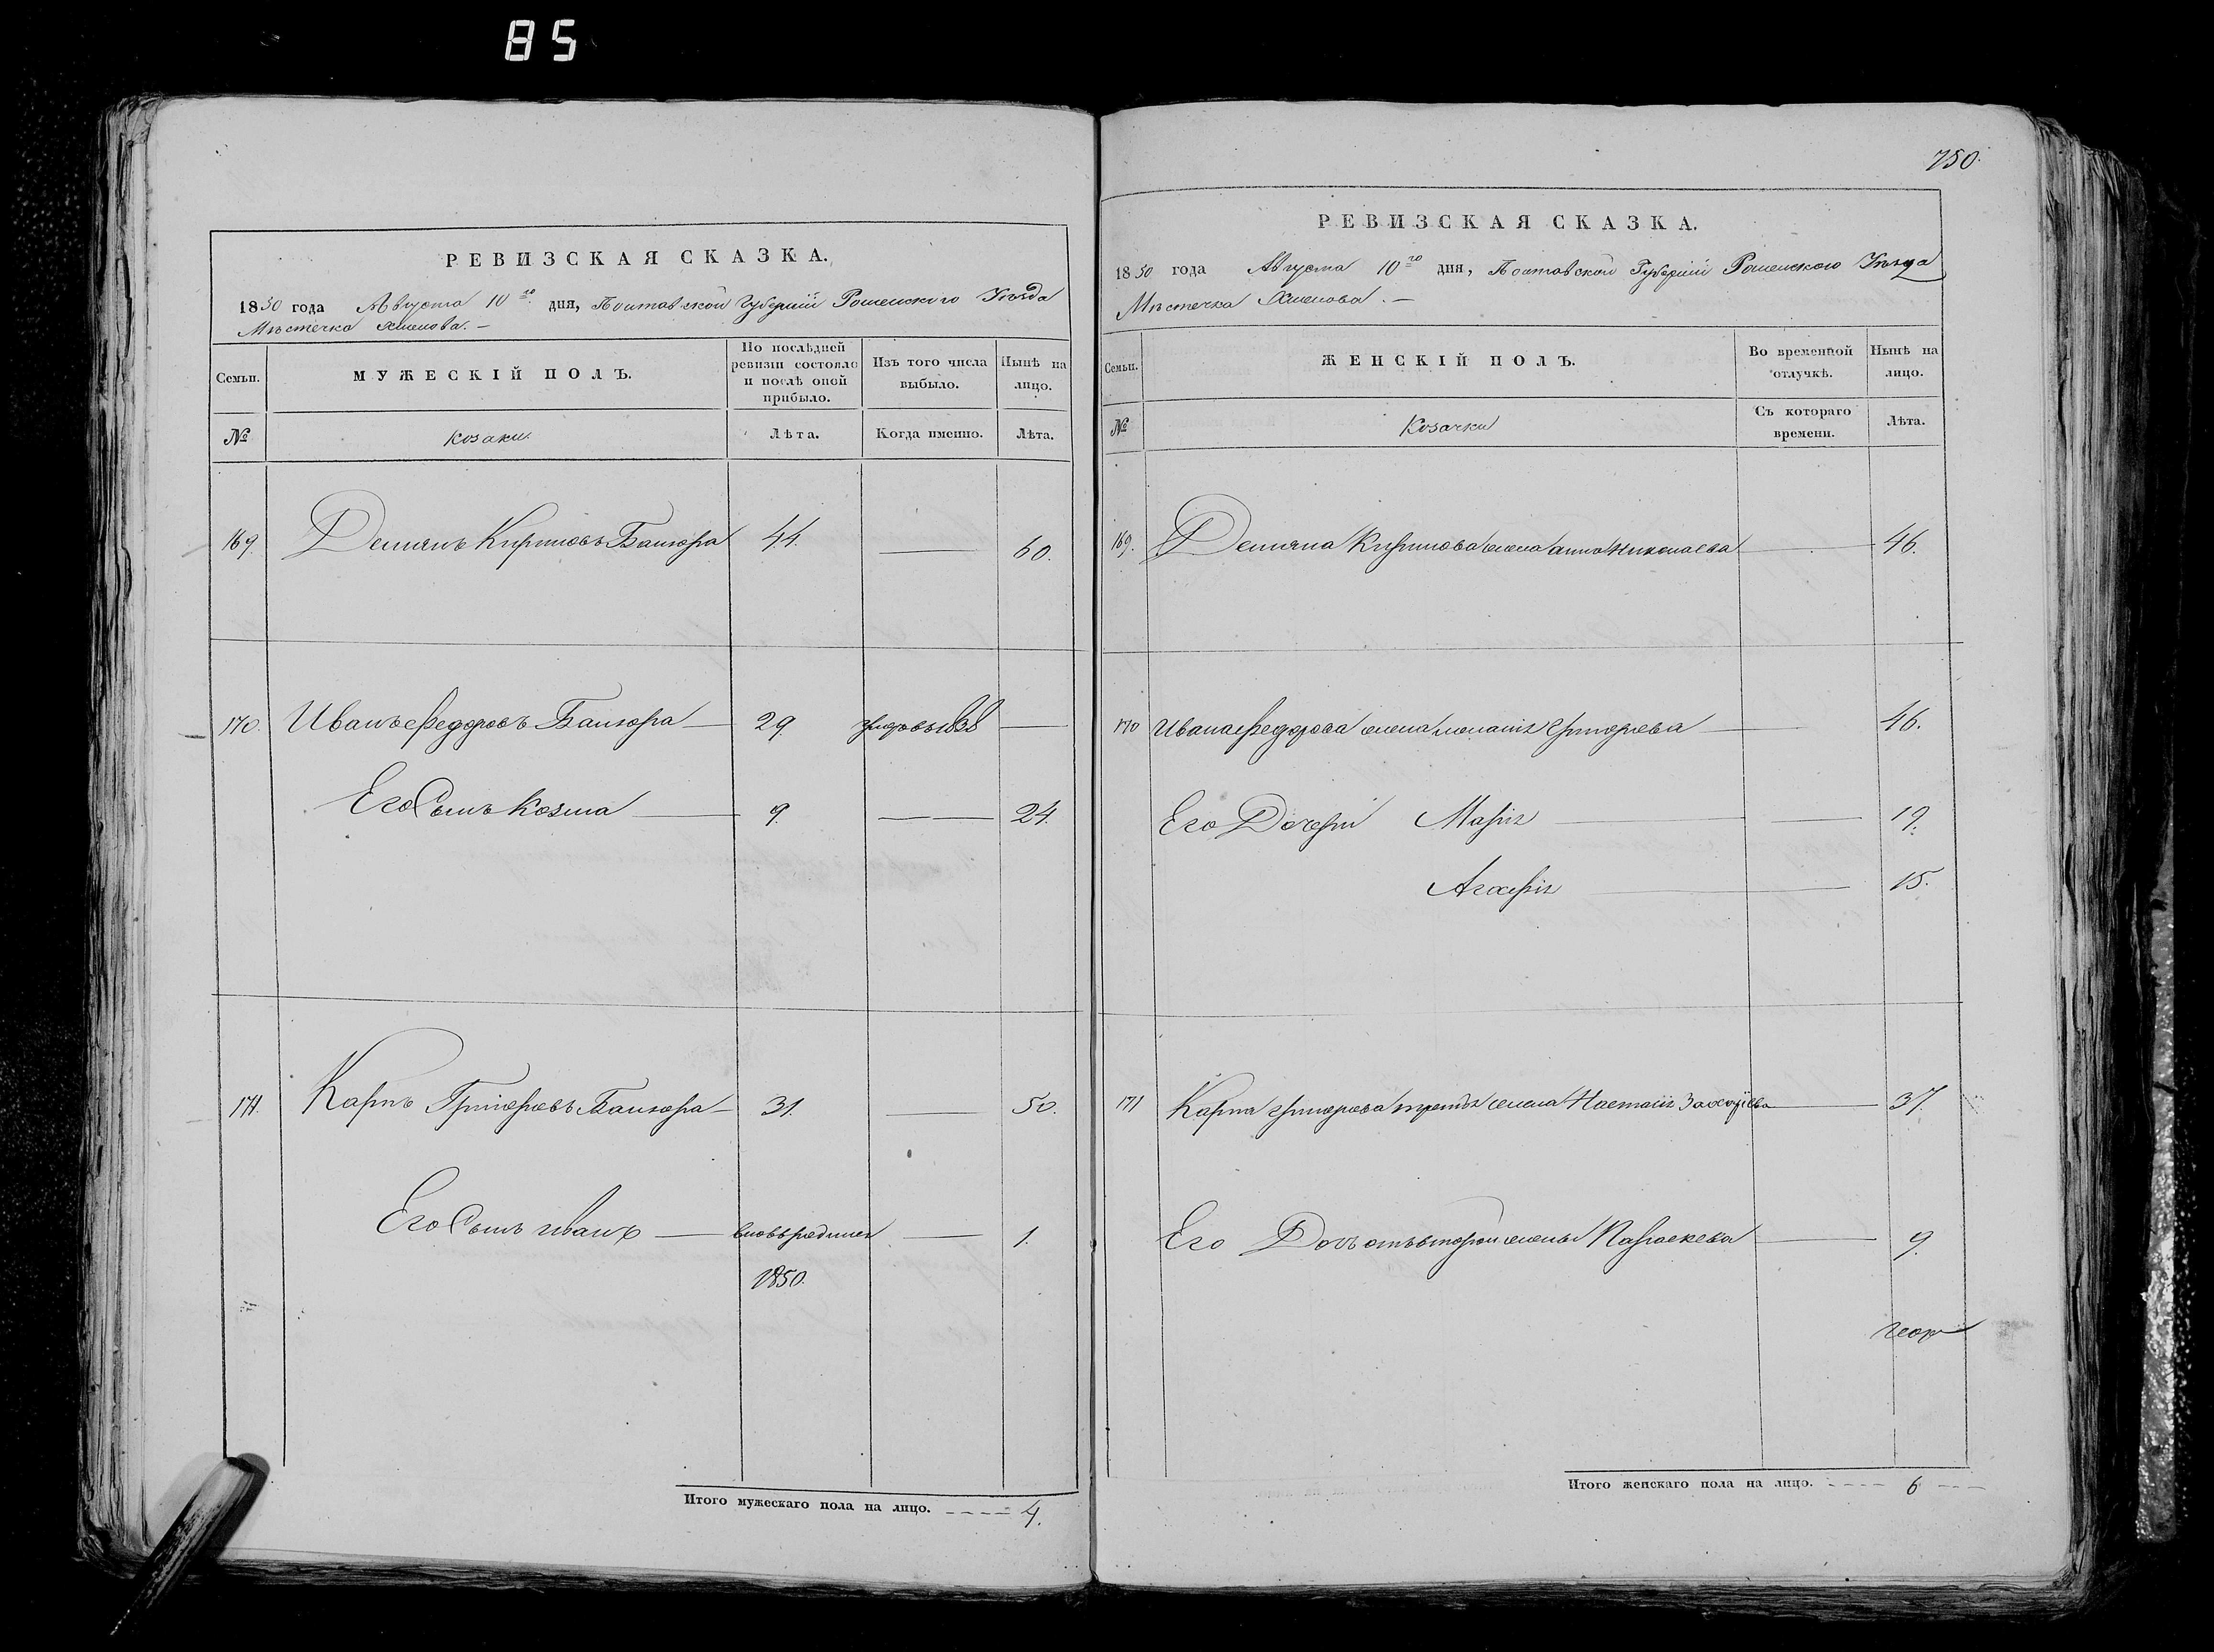 85
РЕВИЗСКАЯ СКАЗКА.
1850 года Августа 10го дня, Полтавской Губерніи Роменского Уѣзда
Мѣстечка
Семьи. МУЖЕСКІЙ ПОЛЪ. По послѣдней ревизіи состояло и послѣ оной прибыло. Изъ того числа выбыло. Нынѣ на лицо.
№ Козаки. Лѣта. Когда именно. Лѣта.
169. Демянъ Кириловъ 44. 60.
170. Иванъ Федоровъ 29
Его Сынъ Козма 9. 24.
171. Карпъ Григоріевъ 31. 50.
Его Сынъ Иванъ 1.
1850.
Итого мужескаго пола на лицо. 4.
750.
РЕВИЗСКАЯ СКАЗКА.
1850 года Августа 10го дня, Полтавской Губерніи Роменского Уѣзда
Мѣстечка
Семьи. ЖЕНСКІЙ ПОЛЪ. Во временной отлучкѣ. Нынѣ на лицо.
№ Козачки Съ котораго времени. Лѣта.
169. Демяна Кирилова жена Анна Николаева 46.
170 Ивана Федорова жена Григорьева 46.
Его Дочери Марія 19.
Агафія 15.
171 Карпа Григорьева третья жена Настасія 37.
Его Дочь отъ второй жены 9.
Итого женскаго пола на лицо. 6